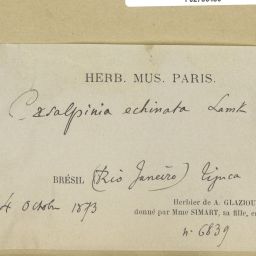 HERB. MUS. PARIS.
Cæsalpinia echinata Lamk
BRÉSIL (Rio Janeiro) Tijuca
4 Octobre 1873
Herbier de A. GLAZIOU
donné par Mme SIMART, sa fille, en
n. 6839